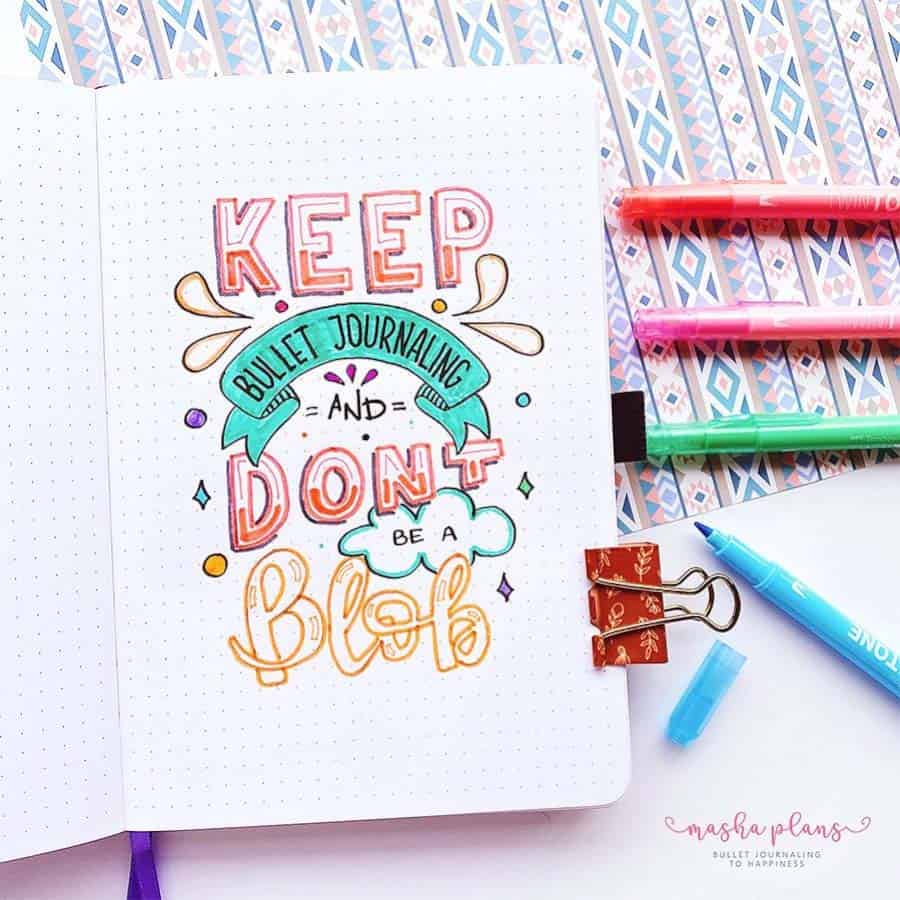 KEEP
BULLET JOURNALING
AND
DONT
BE A
Blob
TWINTO
TWINT
TONE
masha plans
BULLET JOURNALING
TO HAPPINESS